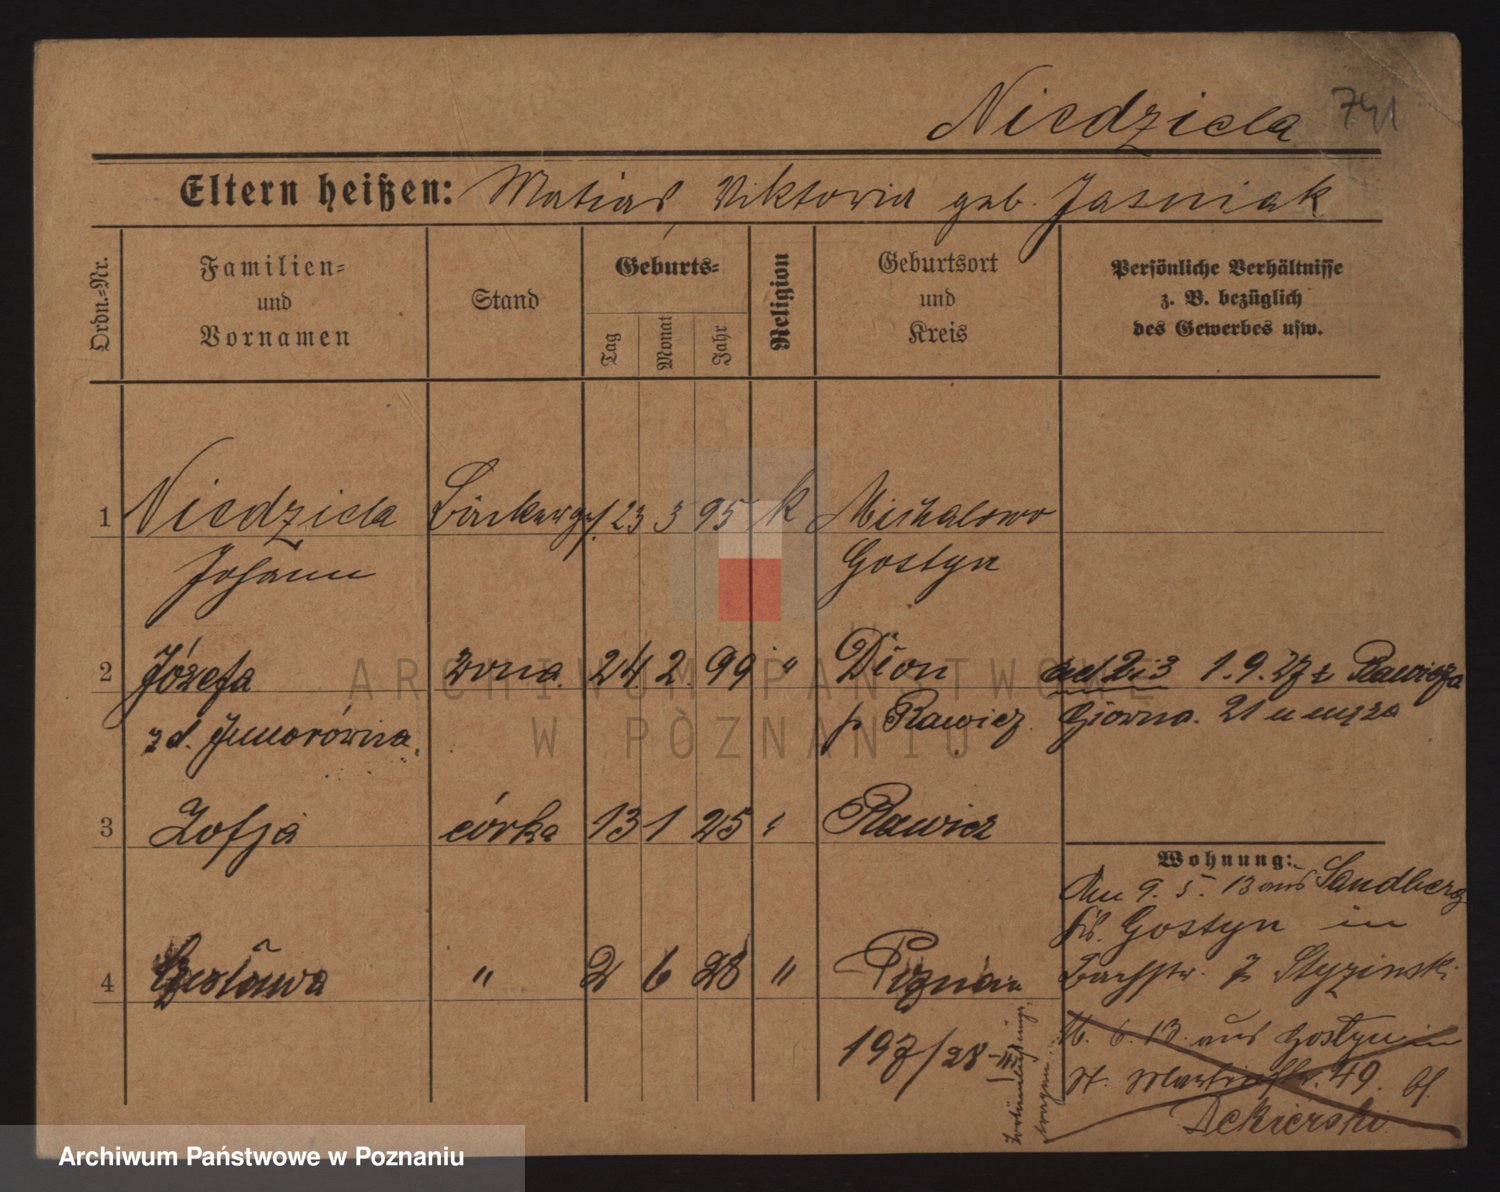 Niedziela 741
Eltern heißen: Matias, Viktoria geb. Jasniak
Ordn.-Nr.
Familien-
und
Vornamen
Stand
Geburts-
Tag
Monat
Jahr
Religion
Geburtsort
und
Kreis
Persönliche Verhältnisse
z. B. bezüglich
des Gewerbes usw.
1 Niedziela Bäckerges. 23 3 95 k Michalowo
Johann Gostyn
2 Józefa żona 24 2 99 " Dłoń
p. Rawicz
zd.
ad 2 i 3 1.9.27 z Rawicza
Górna. 21 u męża
3 Zofja córka 13 1 25 " Rawicz
4 Czesława " 2 6 28 " Poznań
197/28 III
Wohnung:
Am 9. 5. 13 aus Sandberg
Gostyn in
Bachstr. 7 Styzinski
6. 13. aus Gostyn in
St. Martinstr. 49. bf.
Dekierski
ARCHIWUM PAŃSTWOWE
W POZNANIU
Archiwum Państwowe w Poznaniu